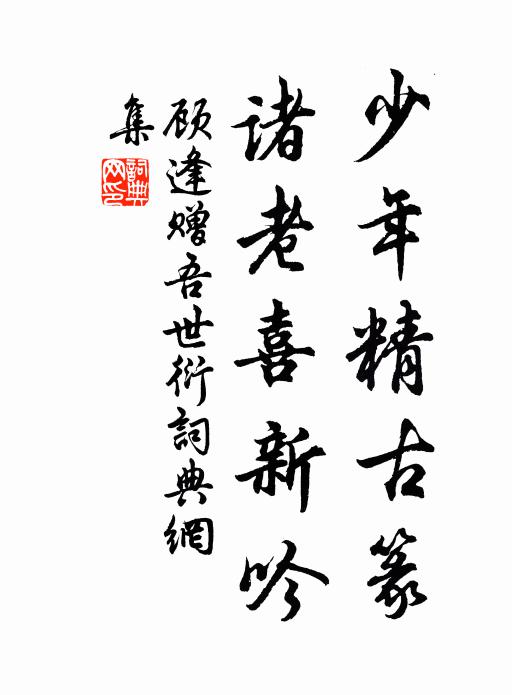 少年精古篆
诸老喜新吟
顾逢赠吾世衍詞典網
集
詞典
网印